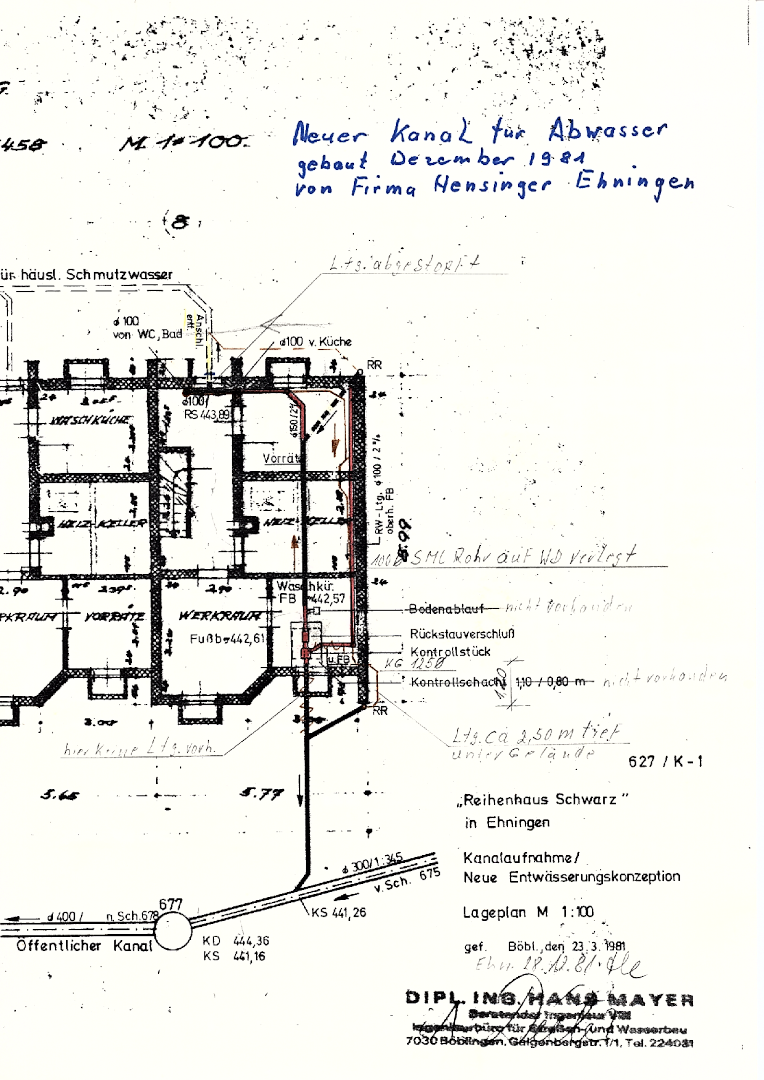 458
M. 1:100.
Neuer Kanal für Abwasser
gebaut Dezember 1981
von Firma Hensinger Ehningen
(8)
Ltg. abgestopft
für häusl. Schmutzwasser
ø100
von WC, Bad
Anschl.
ø100 v. Küche
RR
ø100/
RS 443,89
ø150/2%
WASCHKÜCHE
Vorräte
RW-Ltg. ø100/2%
oberh. FB
5.99
HEIZ-KELLER
HEIZ-KELLER
SML Rohr auf WD verlegt
2.90
2.90
Waschkü.
FB 442,57
WERKRAUM
VORRÄTE
WERKRAUM
Fußb 442,61
u.FB
Bodenablauf nicht vorhanden
Rückstauverschluß
Kontrollstück
KG 125ø
Kontrollschacht 1,10 / 0,80 m nicht vorhanden
1,20
RR
3.00
hier keine Ltg. vorh.
Ltg. ca 2,50 m tief
unter Gelände
627 / K-1
5.65
5.77
„Reihenhaus Schwarz"
in Ehningen
Kanalaufnahme/
Neue Entwässerungskonzeption
ø300/1:345
v. Sch. 675
677
ø400/ n. Sch. 678
KS 441,26
Lageplan M 1:100
Öffentlicher Kanal
KD 444,36
KS 441,16
gef. Böbl., den 23.3.1981
Ehn. 28.12.81
DIPL. ING. HANS MAYER
Beratender Ingenieur VBI
Ingenieurbüro für Straßen- und Wasserbau
7030 Böblingen, Galgenbergstr. 1/1, Tel. 224081